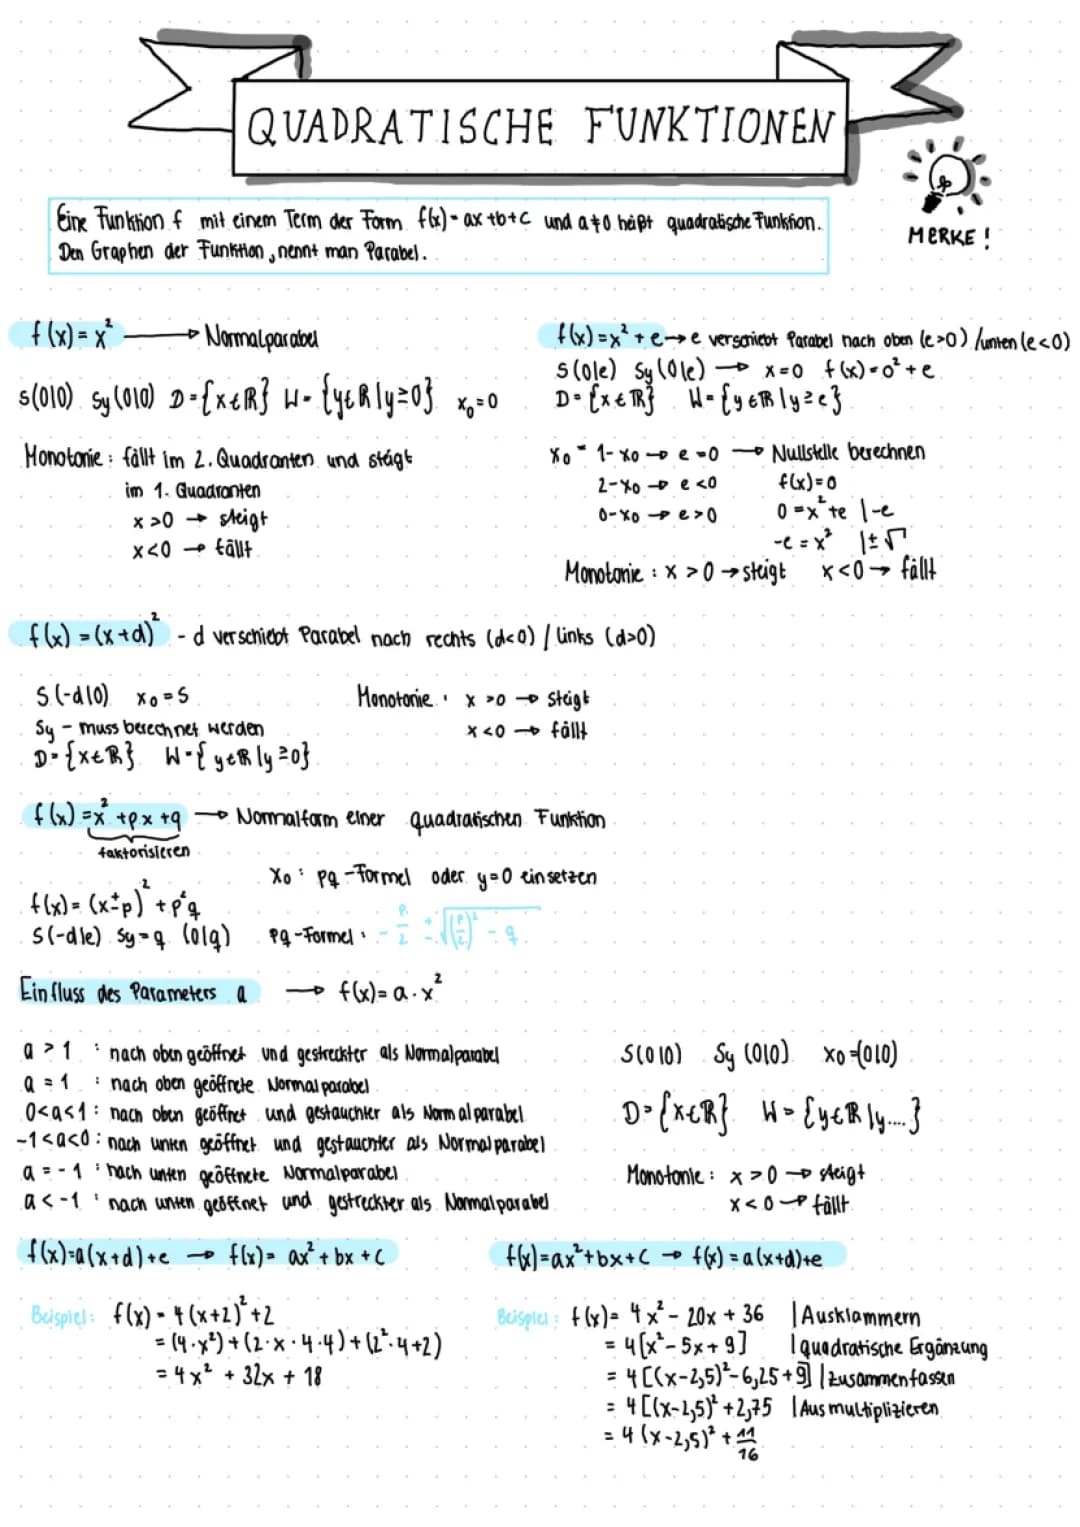 QUADRATISCHE FUNKTIONEN
Eine Funktion f mit einem Term der Form f(x) = ax + b + c und a ≠ 0 heißt quadratische Funktion.
Den Graphen der Funktion, nennt man Parabel.
MERKE!
f(x) = x² → Normalparabel
S(0|0) Sy(0|0) D = {x ∈ ℝ} W = {y ∈ ℝ | y ≥ 0} x₀ = 0
Monotonie: fällt im 2. Quadranten und steigt
im 1. Quadranten
x > 0 → steigt
x < 0 → fällt
f(x) = x² + e → e verschiebt Parabel nach oben (e > 0) / unten (e < 0)
S(0|e) Sy(0|e) → x = 0 f(x) = 0² + e
D = {x ∈ ℝ} W = {y ∈ ℝ | y ≥ e}
x₀ = 1 - x₀ → e = 0 → Nullstelle berechnen
2 - x₀ → e < 0 f(x) = 0
0 - x₀ → e > 0 0 = x² + e | - e
-e = x² | ± √
Monotonie: x > 0 → steigt x < 0 → fällt
f(x) = (x + d)² - d verschiebt Parabel nach rechts (d < 0) / links (d > 0)
S(-d|0) x₀ = S
Sy - muss berechnet werden
D = {x ∈ ℝ} W = {y ∈ ℝ | y ≥ 0}
Monotonie: x > 0 → steigt
x < 0 → fällt
f(x) = x² + px + q → Normalform einer quadratischen Funktion
faktorisieren
x₀: pq-Formel oder y = 0 einsetzen
f(x) = (x ± p)² + p²q
S(-d|e) Sy = q (0|q) pq-Formel: - p/2 ± √(p/2)² - q
Einfluss des Parameters a → f(x) = a · x²
a > 1 : nach oben geöffnet und gestreckter als Normalparabel
a = 1 : nach oben geöffnete Normalparabel
0 < a < 1 : nach oben geöffnet und gestauchter als Normalparabel
-1 < a < 0 : nach unten geöffnet und gestauchter als Normalparabel
a = -1 : nach unten geöffnete Normalparabel
a < -1 : nach unten geöffnet und gestreckter als Normalparabel
S(0|0) Sy(0|0) x₀ = (0|0)
D = {x ∈ ℝ} W = {y ∈ ℝ | y....}
Monotonie: x > 0 → steigt
x < 0 → fällt
f(x) = a(x+d)+e → f(x) = ax² + bx + c
Beispiel: f(x) = 4(x+2)² + 2
= (4·x²) + (2·x·4·4) + (2²·4+2)
= 4x² + 32x + 18
f(x) = ax² + bx + c → f(x) = a(x+d)+e
Beispiel: f(x) = 4x² - 20x + 36 | Ausklammern
= 4[x² - 5x + 9] | quadratische Ergänzung
= 4[(x-2,5)² - 6,25 + 9] | zusammenfassen
= 4[(x-2,5)² + 2,75 | Ausmultiplizieren
= 4(x-2,5)² + 11/16